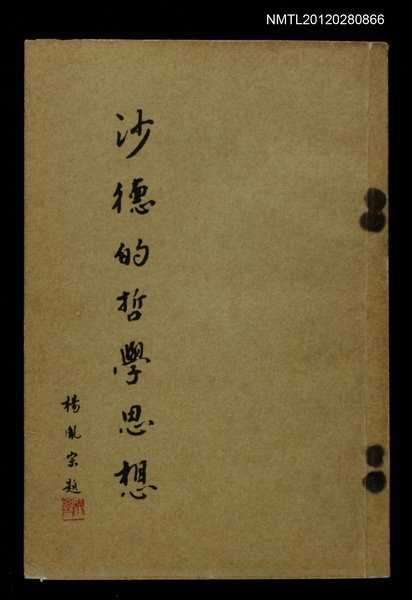 NMTL20120280866
沙德的哲學思想
楊胤宗題